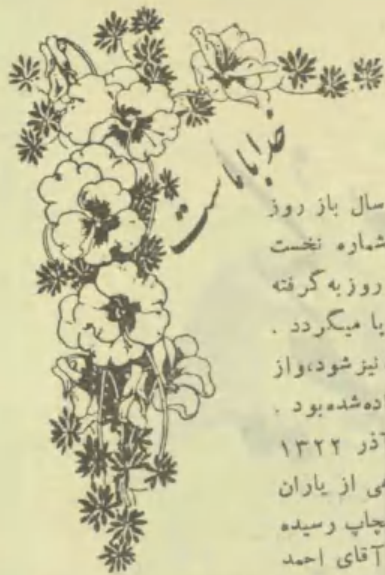 خدا با ماست
سال باز روز
شماره نخست
روزبه گرفته
با میگردد .
نیز شود، و از
داده شده بود .
آذر ۱۳۲۲
از یاران
چاپ رسیده
آقای احمد